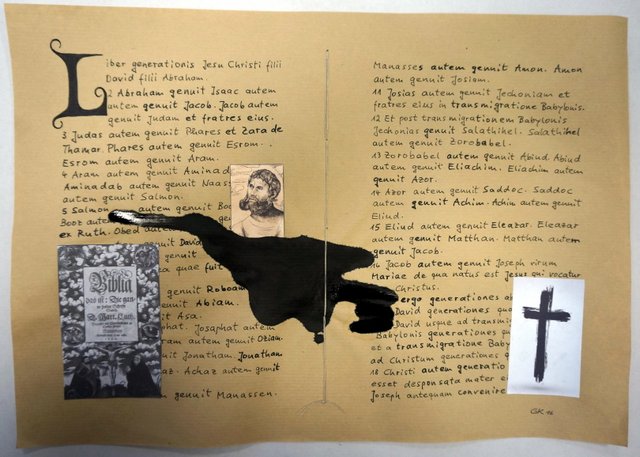 Liber generationis Jesu Christi filii
David filii Abraham.
2 Abraham genuit Isaac autem
autem genuit Jacob. Jacob autem
genuit Judam et fratres eius.
3 Judas autem genuit Phares et Zara de
Thamar. Phares autem genuit Esrom.
Esrom autem genuit Aram.
4 Aram autem genuit Aminad
Aminadab autem genuit Naass
autem genuit Salmon.
5 Salmon autem genuit Boo
Booz autem
ex Ruth. Obed
genuit David
quae fuit
genuit Roboam
genuit Abiam.
genuit Asa.
phat. Josaphat autem
ram autem genuit Oziam.
genuit Jonathan. Jonathan
az. Achaz autem genuit
genuit Manassen.
Biblia
das ist: Die gan
D. Mart. Luth.
Manasses autem genuit Amon. Amon
autem genuit Josiam.
11 Josias autem genuit Jechoniam et
fratres eius in transmigratione Babylonis.
12 Et post transmigrationem Babylonis
Jechonias genuit Salathihel. Salathihel
autem genuit Zorobabel.
13 Zorobabel autem genuit Abiud Abiud
autem genuit Eliachim. Eliachim autem
genuit Azor.
14 Azor autem genuit Saddoc. Saddoc
autem genuit Achim. Achim autem genuit
Eliud.
15 Eliud autem genuit Eleazar. Eleazar
autem genuit Matthan. Matthan autem
genuit Jacob.
16 Jacob autem genuit Joseph virum
Mariae de qua natus est Jesus qui vocatur
Christus.
ergo generationes ab
David generationes qua
David usque ad transmig
Babylonis generationes qu
et a transmigratione Baby
ad Christum generationes
18 Christi autem generatio
esset desponsata mater e
Joseph antequam convenire
GK 16